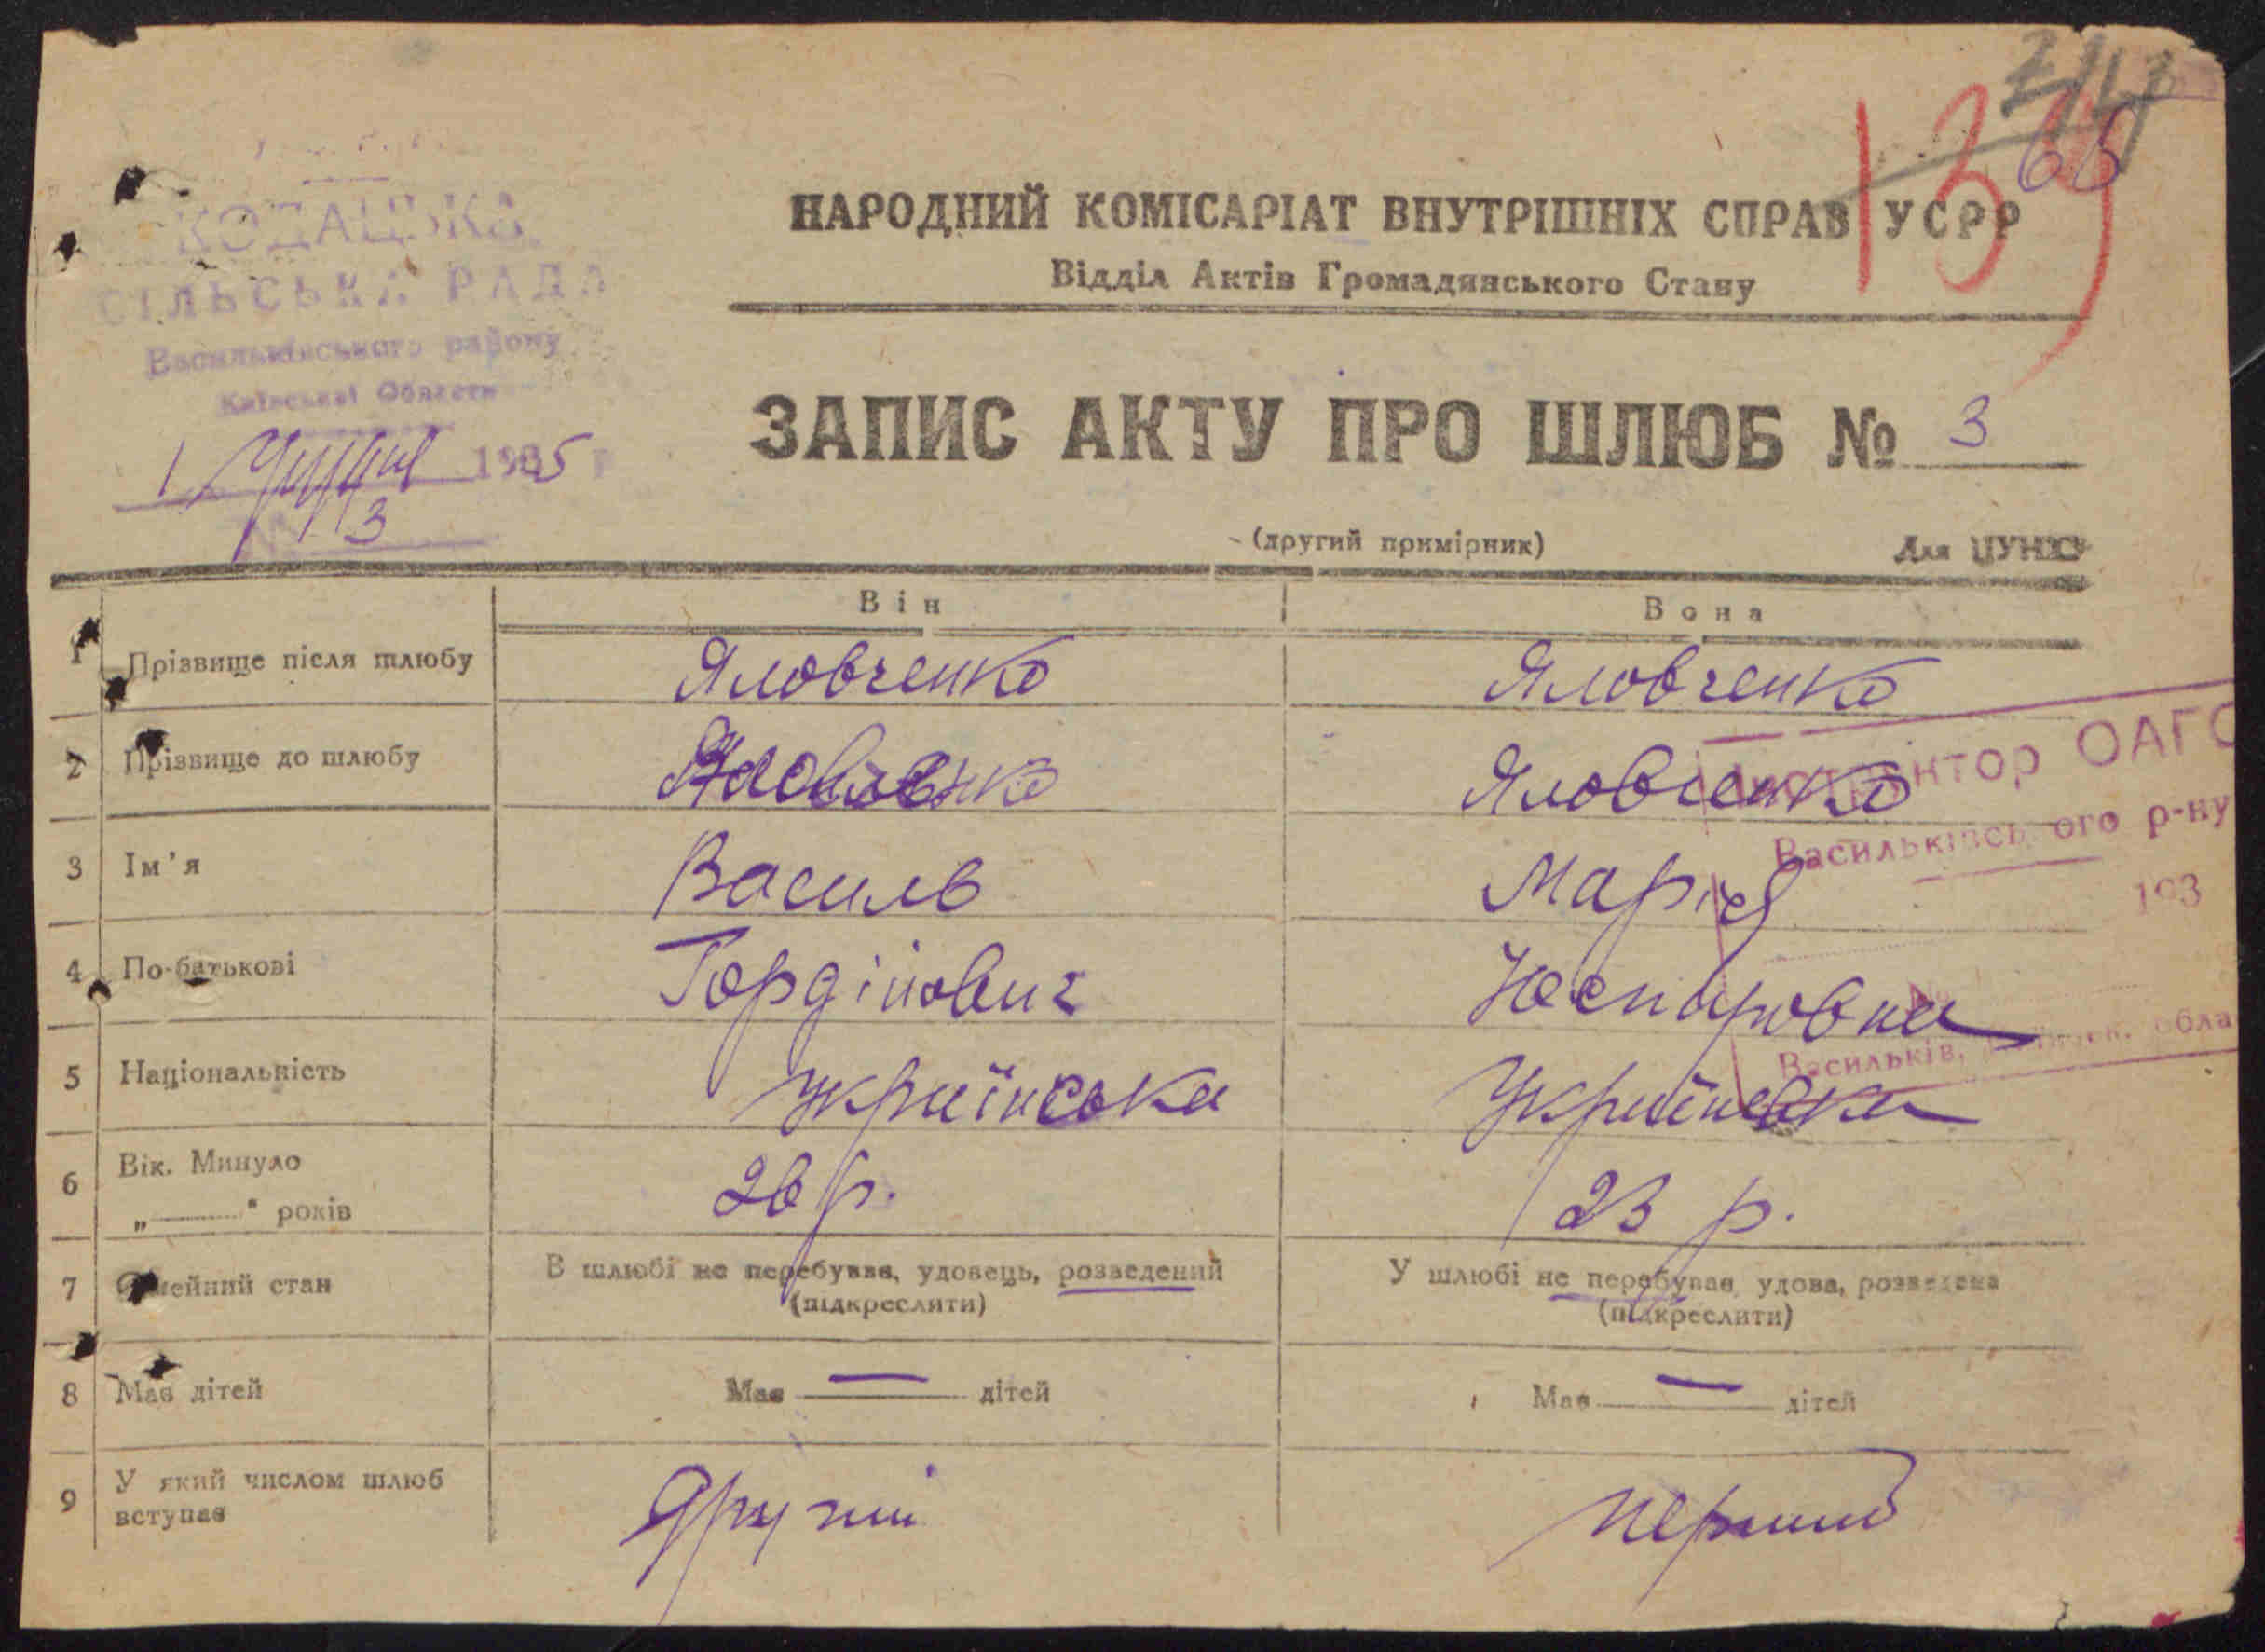 243
139
65
КОДАЦЬКА
СІЛЬСЬКА РАДА
Васильківського району
Київської Области
1 1935 г
3
НАРОДНИЙ КОМІСАРІАТ ВНУТРІШНІХ СПРАВ УСРР
Відділ Актів Громадянського Стану
ЗАПИС АКТУ ПРО ШЛЮБ № 3
(другий примірник) Для ЦУНХУ
Він Вона
1 Прізвище після шлюбу Яловченко Яловченко
2 Прізвище до шлюбу Яловченко
3 Ім’я Василь Марія
4 По-батькові Гордійович
5 Національність українська Українська
6 Вік. Минуло
„ “ років 26 р. 23 р.
7 Сімейний стан В шлюбі не перебував, удовець, розведений У шлюбі не перебував, удова, розведена
(підкреслити) (підкреслити)
8 Має дітей Має — дітей Має — дітей
9 У який числом шлюб
вступає другий перший
Інструктор ОАГС
Васильківського р-ну
193
Васильків,